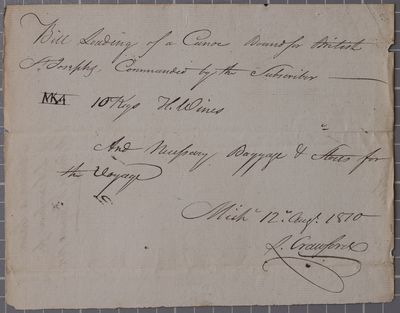 Bill Loading of a Canoe Bound for British
St. Josephs, Commanded by the Subscriber
10 Kegs H. Wines
And Necessary Baggage & Stores for
the Voyage
Mich. 12 Augt. 1810
J. Crawford